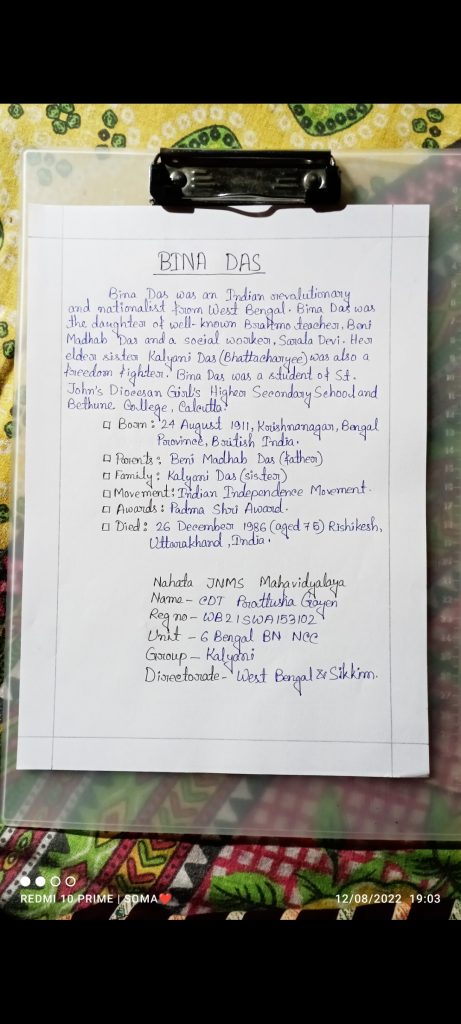 BINA DAS
Bina Das was an Indian revolutionary
and nationalist from West Bengal. Bina Das was
the daughter of well-known Brahmo teacher, Beni
Madhab Das and a social worker, Sarala Devi. Her
elder sister Kalyani Das (Bhattacharjee) was also a
freedom fighter. Bina Das was a student of St.
John's Diocesan Girl's Higher Secondary School and
Bethune College, Calcutta.
Born: 24 August 1911, Krishnanagar, Bengal
Province, British India.
Parents: Beni Madhab Das (father)
Family: Kalyani Das (sister)
Movement: Indian Independence Movement.
Awards: Padma Shri Award.
Died: 26 December 1986 (aged 75) Rishikesh,
Uttarakhand, India.
Nahata JNMS Mahavidyalaya
Name - CDT Prattusha Gayen
Reg no - WB21SWA153102
Unit - 6 Bengal BN NCC
Group - Kalyani
Directorate - West Bengal & Sikkim.
REDMI 10 PRIME | SOMA❤
12/08/2022 19:03